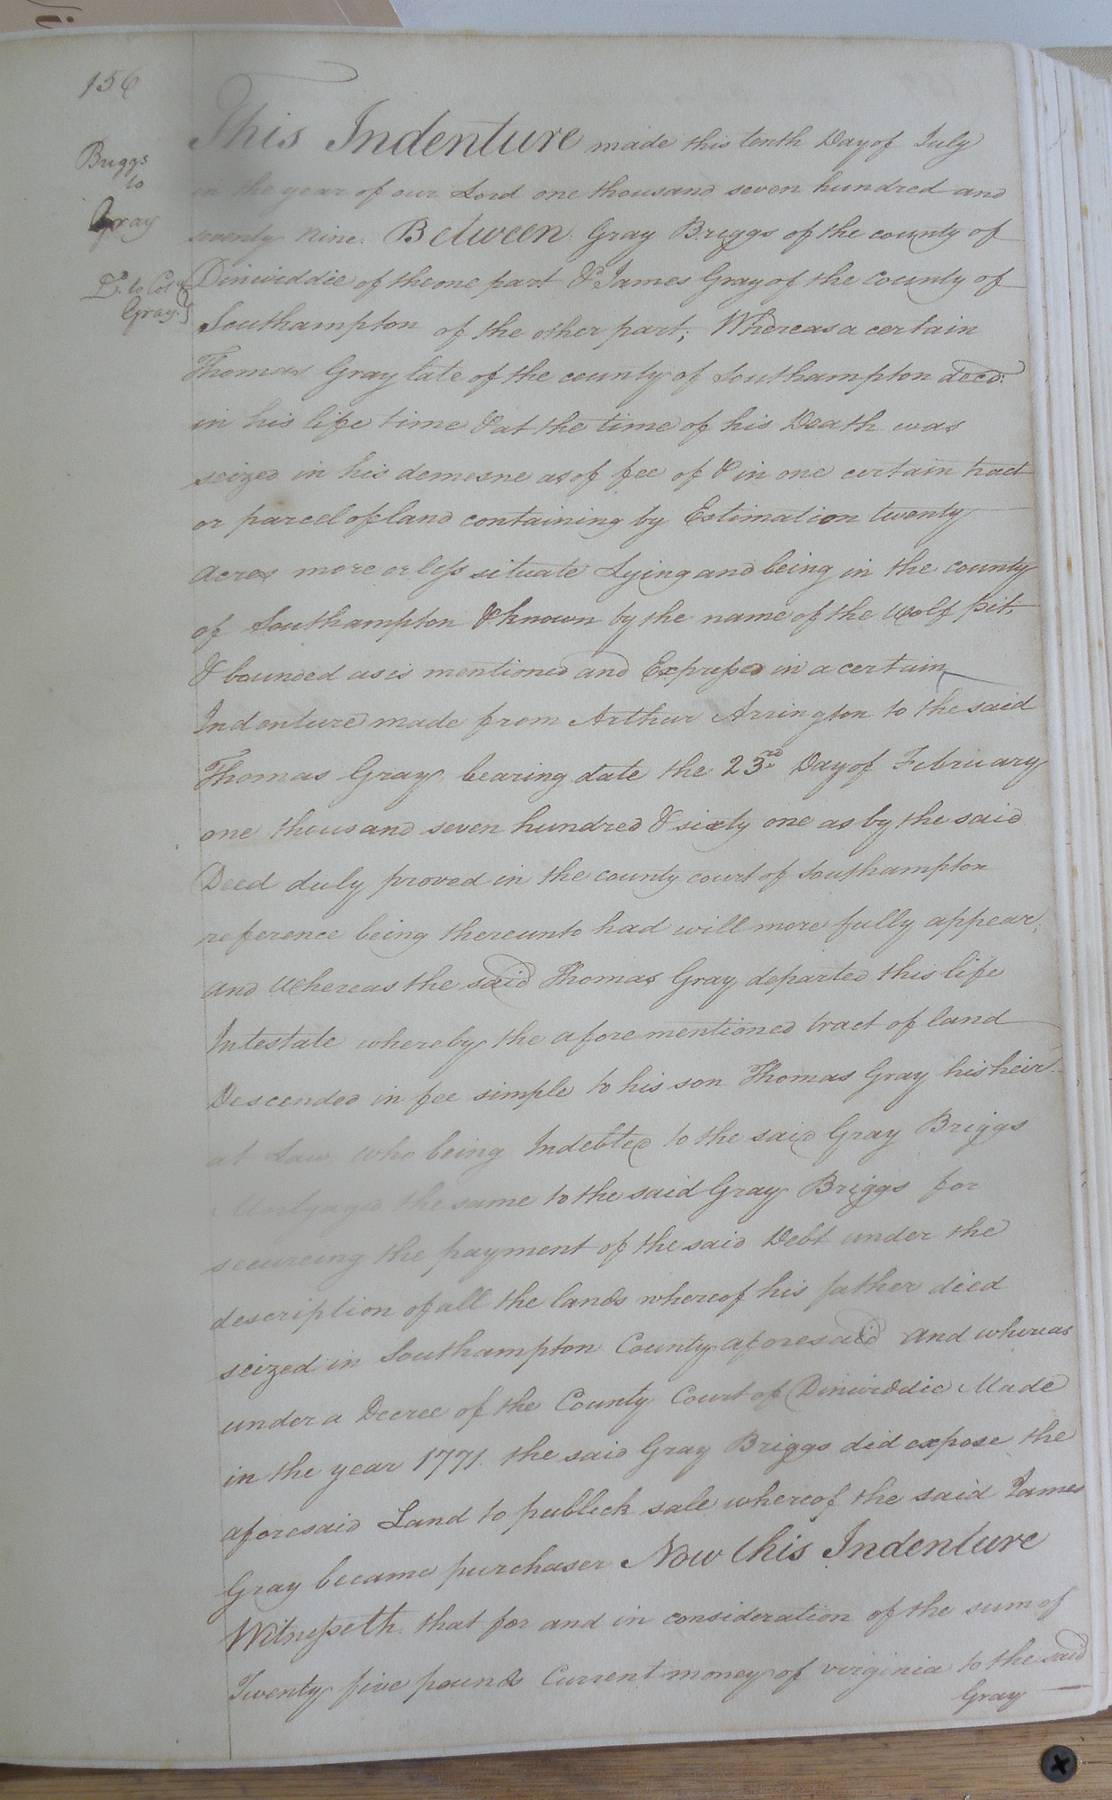 156
Briggs
to
Gray
D. to Col
Gray.
This Indenture made this tenth Day of July
in the year of our Lord one thousand seven hundred and
seventy nine. Between Gray Briggs of the county of
Dinwiddie of the one part & James Gray of the County of
Southampton of the other part; Whereas a certain
Thomas Gray late of the county of Southampton decd.
in his life time & at the time of his Death was
seized in his demesne as of fee of & in one certain tract
or parcel of land containing by Estimation twenty
Acres more or less situate Lying and being in the county
of Southampton & known by the name of the Wolf pit,
& bounded as is mentioned and Expressed in a certain
Indenture made from Arthur Arrington to the said
Thomas Gray bearing date the 23rd Day of February
one thousand seven hundred & sixty one as by the said
Deed duly proved in the county court of Southampton
reference being thereunto had will more fully appear,
And Whereas the said Thomas Gray departed this life
Intestate whereby the aforementioned tract of land
Descended in fee simple to his son Thomas Gray his heir
at Law who being Indebted to the said Gray Briggs
Mortgaged the same to the said Gray Briggs for
secureing the payment of the said Debt under the
description of all the lands whereof his father died
seized in Southampton County aforesaid And whereas
under a Decree of the County Court of Dinwiddie Made
in the year 1771. the said Gray Briggs did expose the
aforesaid Land to publick sale whereof the said James
Gray became purchaser Now this Indenture
Witnesseth that for and in consideration of the sum of
Twenty five pounds Current money of virginia to the said
Gray